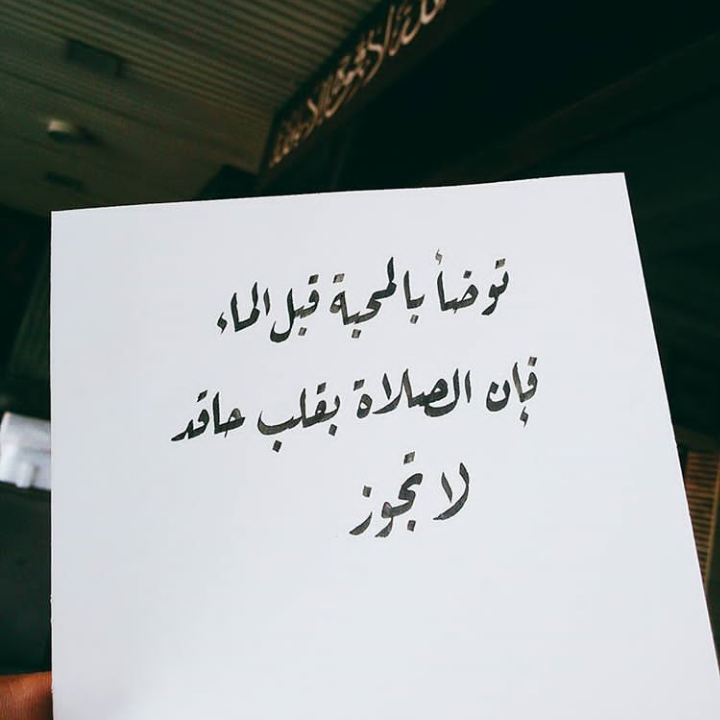 توضأ بالمحبة قبل الماء
فإن الصلاة بقلب حاقد
لا تجوز